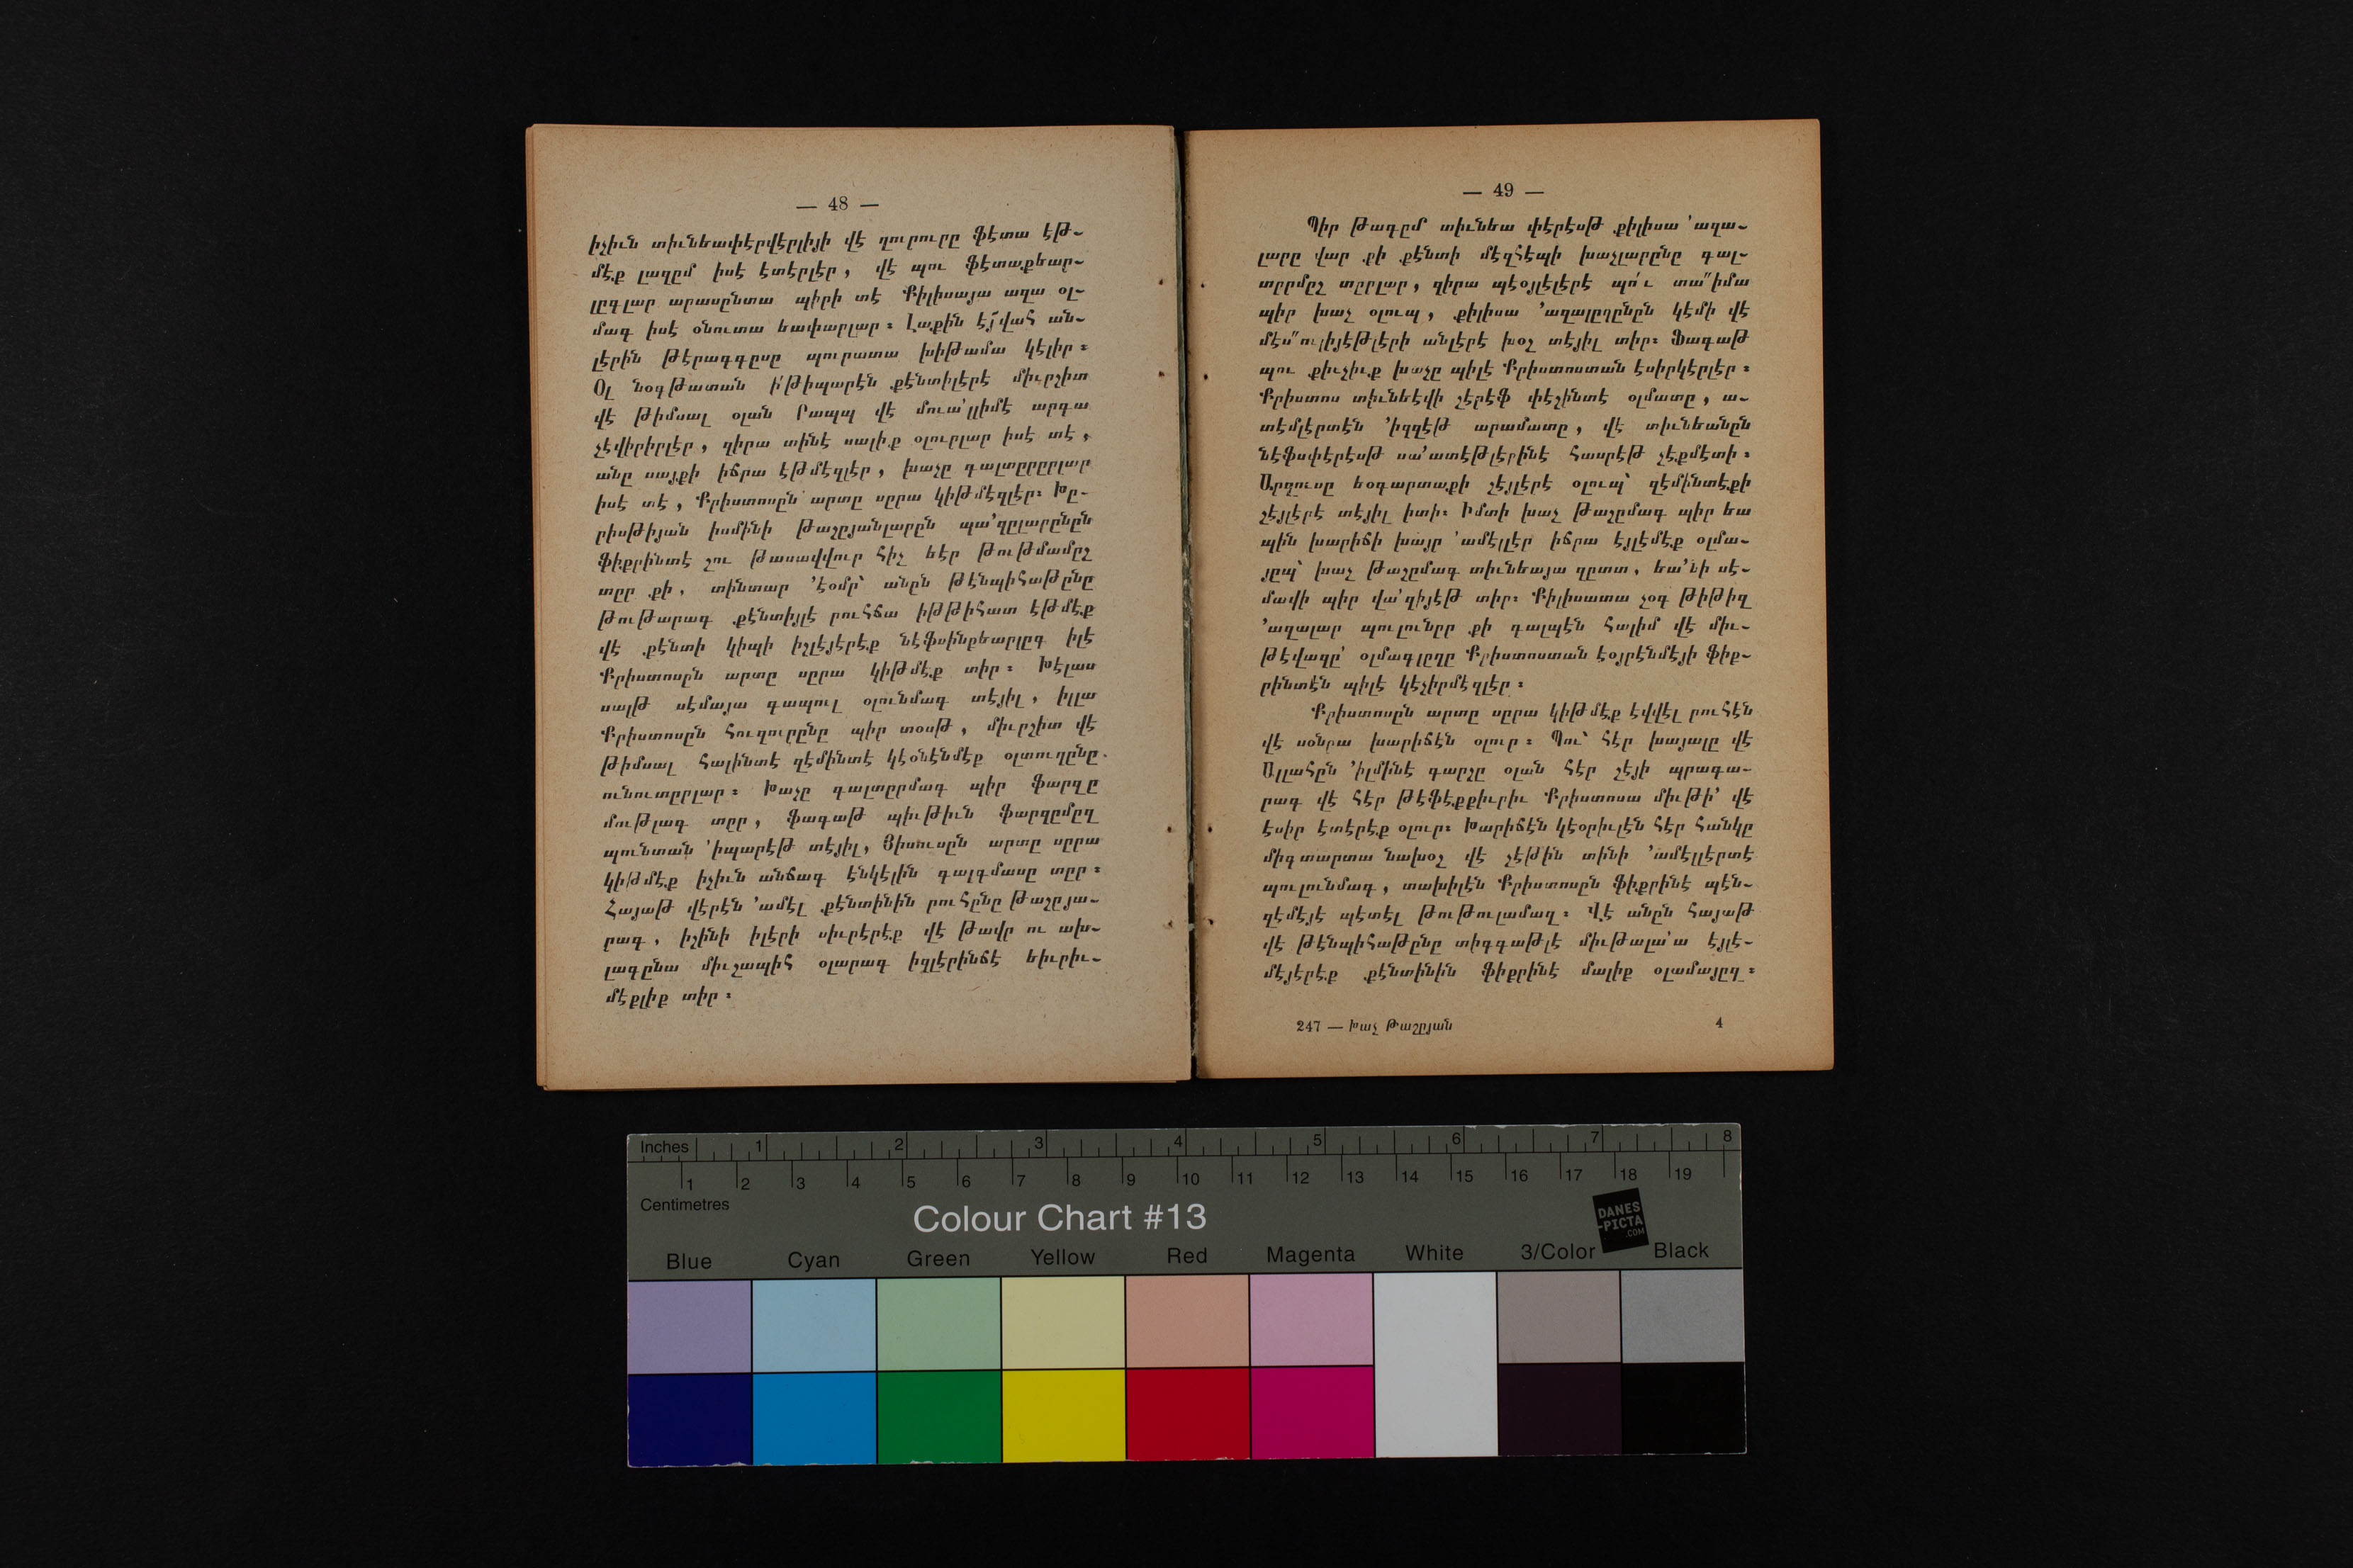 — 48 —
իչիւն տիւնեափէրվէրլիյի վէ ղուրուրը ֆէտա էթ-
մէք լազըմ իսէ էտէրլէր, վէ պու ֆէտաքեար-
լըգլար արասընտա պիրի տէ Քիլիսայա աղա օլ-
մագ իսէ օնուտա եափարլար։ Լաքին էյվահ ան-
լէրին թէրագգըսը պուրատա խիթամա կէլիր։
Օլ նօգթատան ի՛թիպարէն քէնտիլէրէ միւրշիտ
վէ թիմսալ օլան Րապպ վէ մուա՛լլիմէ արգա
չէվիրիրլէր, զիրա տինէ սալիք օլուրլար իսէ տէ,
անը սայքի իճրա էթմէզլէր, խաչը գալտըրըրլար
իսէ տէ, Քրիստոսըն արտը սըրա կիթմէզլէր։ Խը-
րիսթիյան իսմինի թաշըյանլարըն պա՛զըլարընըն
ֆիքրինտէ շու թասավվուր հիչ եէր թութմամըշ
տըր քի, տինտար ՚էօմր՝ անըն թէնպիհաթընը
թութարագ քէնտիյլէ րուհճա իթթիհատ էթմէք
վէ քէնտի կիպի իշլէյէրէք նէֆսինքեարլըգ իլէ
Քրիստոսըն արտը սըրա կիթմէք տիր։ Խէլաս
սալթ սէմայա գապուլ օլունմագ տէյիլ, իլլա
Քրիստոսըն հուզուրընը պիր տօսթ, միւրշիտ վէ
թիմսալ հալինտէ զէմինտէ կէօնէնմէք օլտուղընը
ունուտըրլար։ Խաչը գալտըրմագ պիր ֆարզը
մութլագ տըր, ֆագաթ պիւթիւն ֆարզըմըզ
պունտան ՚իպարէթ տէյիլ, Յիսուսըն արտը սըրա
կիթմէք իչիւն անճագ էնկէլին գալգմասը տըր։
Հայաթ վէրէն ՚ամէլ քէնտինին րուհընը թաշըյա-
րագ, իշինի իլէրի սիւրէրէք վէ թավր ու ախ-
լագընա միւշապիհ օլարագ իզլէրինճէ եիւրիւ-
մէքլիք տիր։
— 49 —
Պիր թագըմ տիւնեա փէրէսթ քիլիսա ՚աղա-
լարը վար քի քէնտի մէզհէպի խաչլարընը գալ-
տըրմըշ տըրլար, զիրա պէօյլէլէրէ պո՛ւ տա՛՛իմա
պիր խաչ օլուպ, քիլիսա ՚աղալըղընըն կէմի վէ
մէս՛՛ուլիյէթլէրի անլէրէ խօշ տէյիլ տիր։ Ֆագաթ
պու քիւչիւք խաչը պիլէ Քրիստոստան էսիրկէրլէր։
Քրիստոս տիւնեէվի շէրէֆ փէշինտէ օլմատը, ա-
տէմլէրտէն ՚իզզէթ արամատը, վէ տիւնեանըն
նէֆսփէրէսթ սա՛ատէթլէրինէ հասրէթ չէքմէտի։
Արզուսը եօգարտաքի շէյլէրէ օլուպ՝ զէմինտէքի
շէյլէրէ տէյիլ իտի։ Իմտի խաչ թաշըմագ պիր եա
պին խարիճի խայր ՚ամէլլէր իճրա էյլէմէք օլմա-
յըպ՝ խաչ թաշըմագ տիւնեայա զըտտ, եա՛նի սէ-
մավի պիր վա՛զիյէթ տիր։ Քիլիսատա չօգ թիթիզ
՚աղալար պուլունըր քի գալպէն հալիմ վէ միւ-
թէվազը՛ օլմագլըղը Քրիստոստան էօյրէնմէյի ֆիք-
րինտէն պիլէ կէչիրմէզլէր։
Քրիստոսըն արտը սըրա կիթմէք էվվէլ րուհէն
վէ սօնրա խարիճէն օլուր։ Պու՝ հէր խայալը վէ
Ալլահըն ՚իլմինէ գարշը օլան հէր շէյի պրագա-
րագ վէ հէր թէֆէքքիւրիւ Քրիստոսա միւթի՛ վէ
էսիր էտէրէք օլուր։ Խարիճէն կէօրիւլէն հէր հանկը
միգտարտա նախօշ վէ չէթին տինի ՚ամէլլէրտէ
պուլունմագ, տախիլէն Քրիստոսըն ֆիքրինէ պէն-
զէմէյէ պէտէլ թութուլամազ։ Վէ անըն հայաթ
վէ թէնպիհաթընը տիգգաթլէ միւթալա՛ա էյլէ-
մէյէրէք քէնտինին ֆիքրինէ մալիք օլամայըզ։
247 — Խաչ Թաշըյան 4
Inches 1 2 3 4 5 6 7 8
1 2 3 4 5 6 7 8 9 10 11 12 13 14 15 16 17 18 19
Centimetres
Colour Chart #13
DANES
-PICTA
.COM
Blue Cyan Green Yellow Red Magenta White 3/Color Black